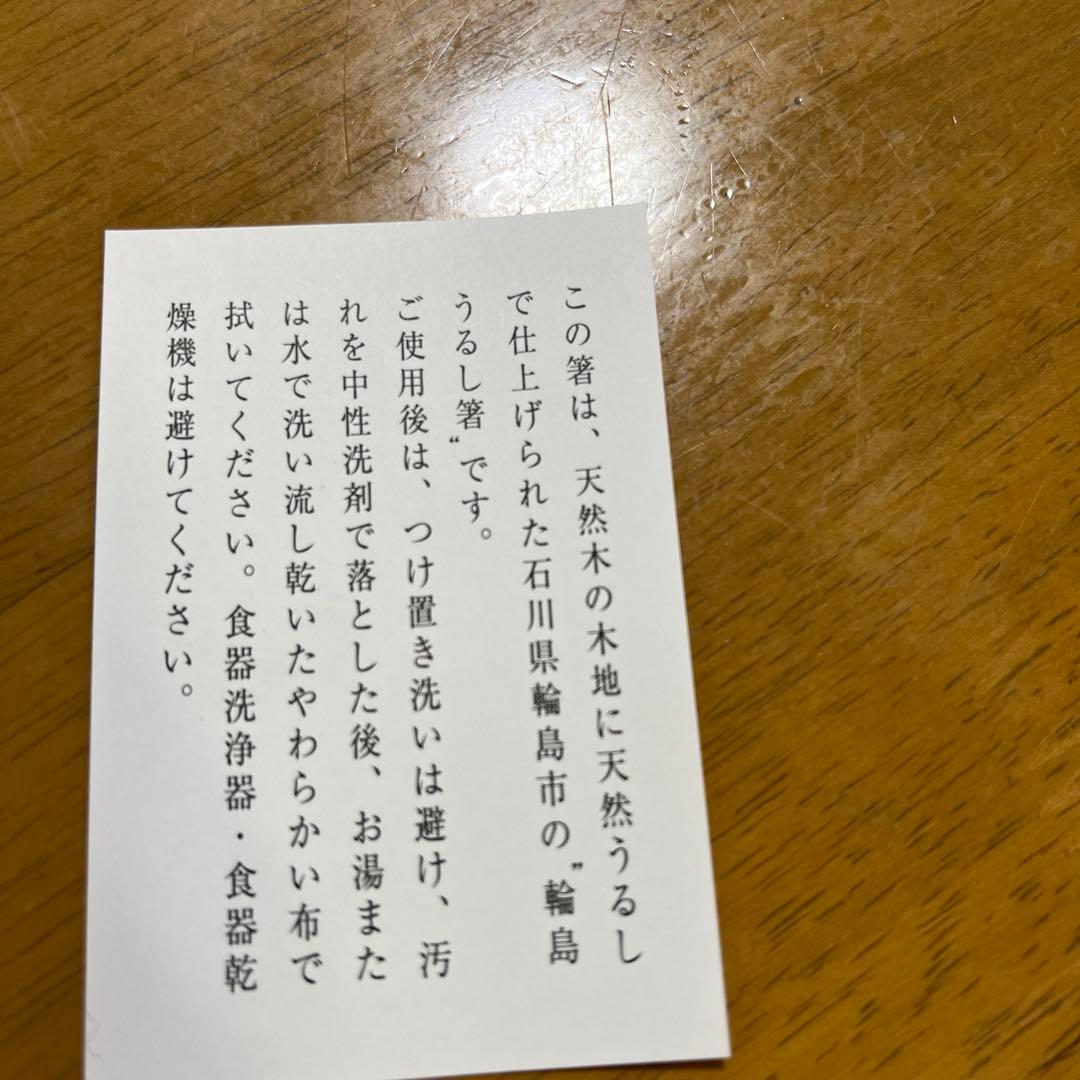 この箸は、天然木の木地に天然うるし
で仕上げられた石川県輪島市の”輪島
うるし箸“です。
ご使用後は、つけ置き洗いは避け、汚
れを中性洗剤で落とした後、お湯また
は水で洗い流し乾いたやわらかい布で
拭いてください。食器洗浄器・食器乾
燥機は避けてください。